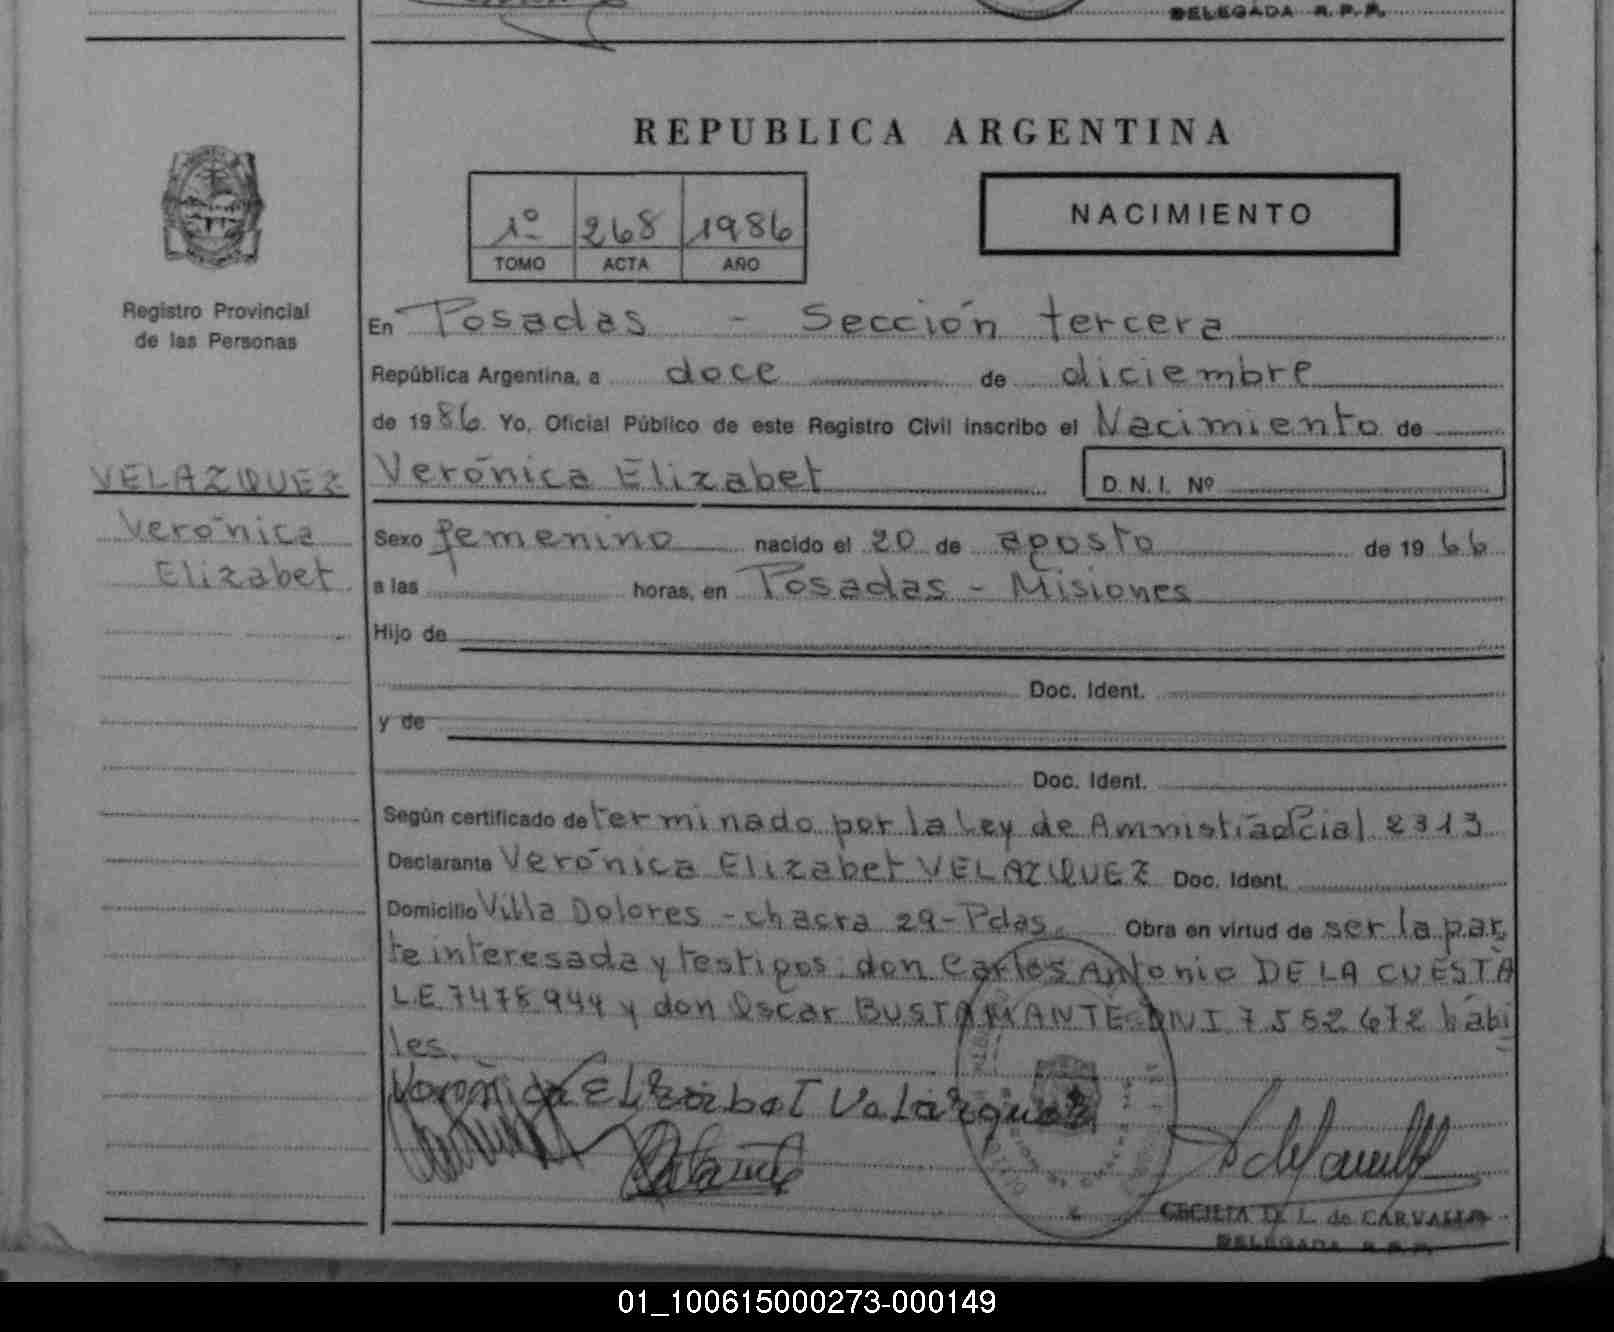 DELEGADA R.P.P.
REPUBLICA ARGENTINA
1º 268 1986
TOMO ACTA AÑO
NACIMIENTO
Registro Provincial
de las Personas
En Posadas - Sección tercera
República Argentina, a doce de diciembre
de 1986. Yo, Oficial Público de este Registro Civil inscribo el Nacimiento de
VELAZQUEZ
Verónica
Elizabet
Verónica Elizabet D.N.I. Nº
Sexo femenino nacido el 20 de agosto de 1966
a las horas, en Posadas - Misiones
Hijo de
Doc. Ident.
y de
Doc. Ident.
Según certificado determinado por la Ley de Amnistía Pcial 2313
Declarante Verónica Elizabet VELAZQUEZ Doc. Ident.
Domicilio Villa Dolores - chacra 29 - Pdas. Obra en virtud de ser la par
te interesada y testigos: don Carlos Antonio DE LA CUESTA
L.E 7478944 y don Oscar BUSTAMANTE DNI 7.552.672 hábi
les.
Verónica Elizabet Velazquez
CECILIA D. L. de CARVALLO
DELEGADA R.P.P.
01_100615000273-000149